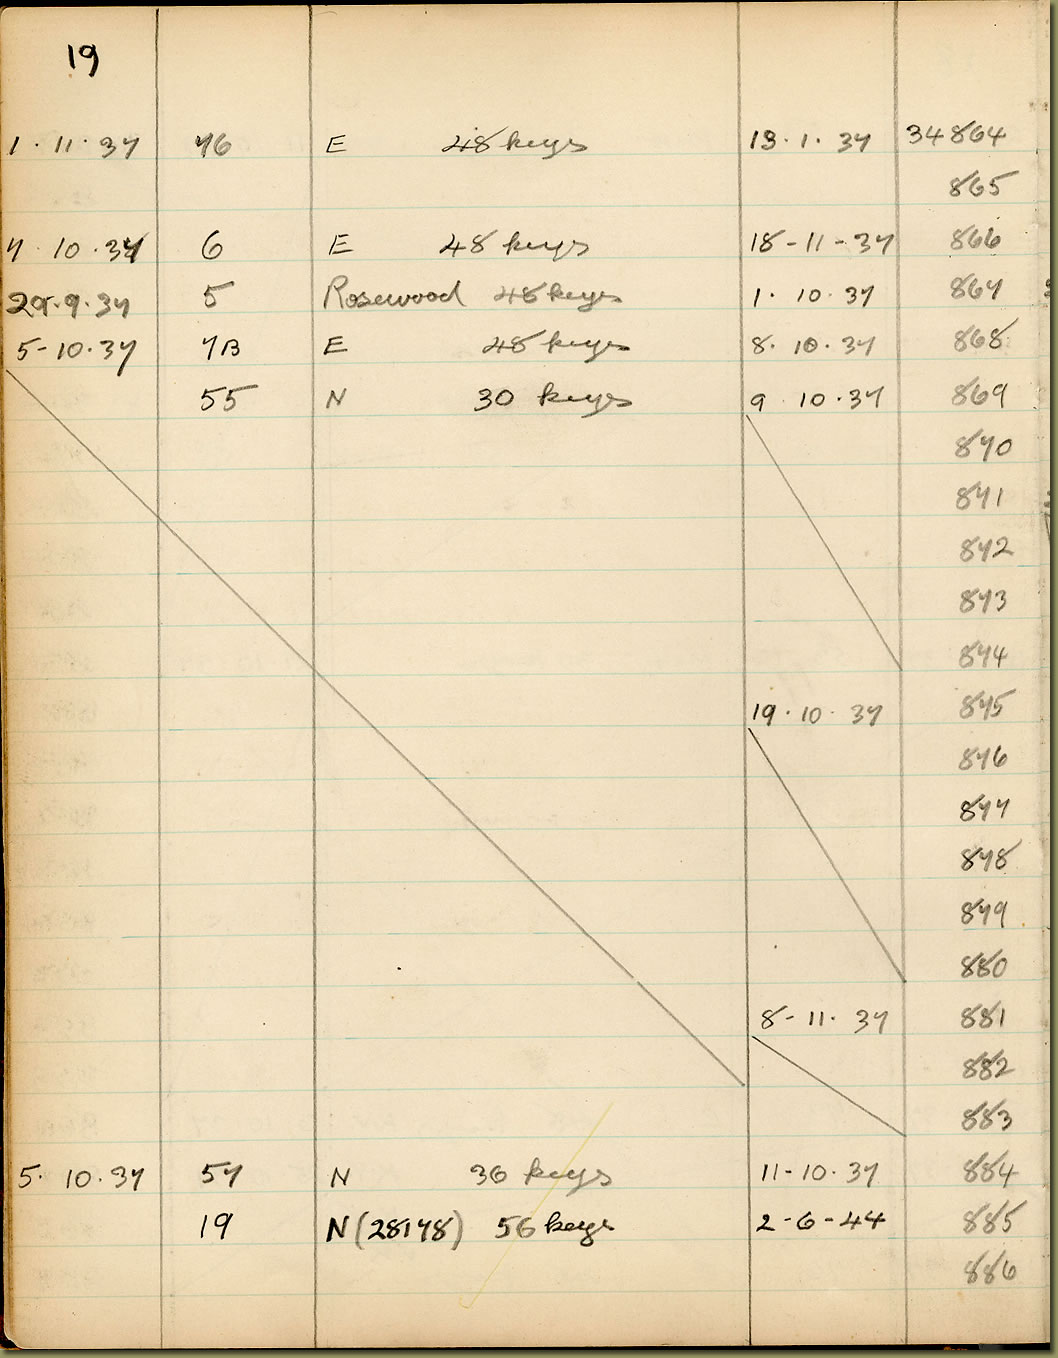 19
1 · 11 · 37 76 E 48 keys 13 · 1 · 37 34864
865
7 · 10 · 37 6 E 48 keys 18 - 11 - 37 866
29 · 9 · 37 5 Rosewood 48 keys 1 · 10 · 37 867
5 - 10 · 37 7B E 48 keys 8 · 10 · 37 868
55 N 30 keys 9 · 10 · 37 869
870
871
872
873
874
19 · 10 · 37 875
876
877
878
879
880
8 - 11 · 37 881
882
883
5 · 10 · 37 57 N 36 keys 11 - 10 · 37 884
19 N (28178) 56 keys 2 - 6 - 44 885
886